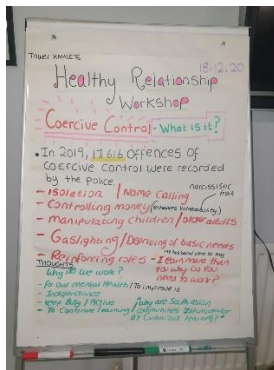 TOWER HAMLETS
18.12.20
Healthy Relationship
Workshop
Coercive Control - What is it?
• In 2019, 17,616 offences of
coercive control were recorded
by the police
narcissistic trait
- Isolation / Name Calling
- Controlling money
- Manipulating children / older adults
- Gaslighting / Depriving of basic needs
- Reinforcing roles - I earn more than
you why do you
need to work?
THOUGHTS
Why do we work?
- For our mental health / To improve it
- Independence
- Keep Busy / Active
- To Continue learning